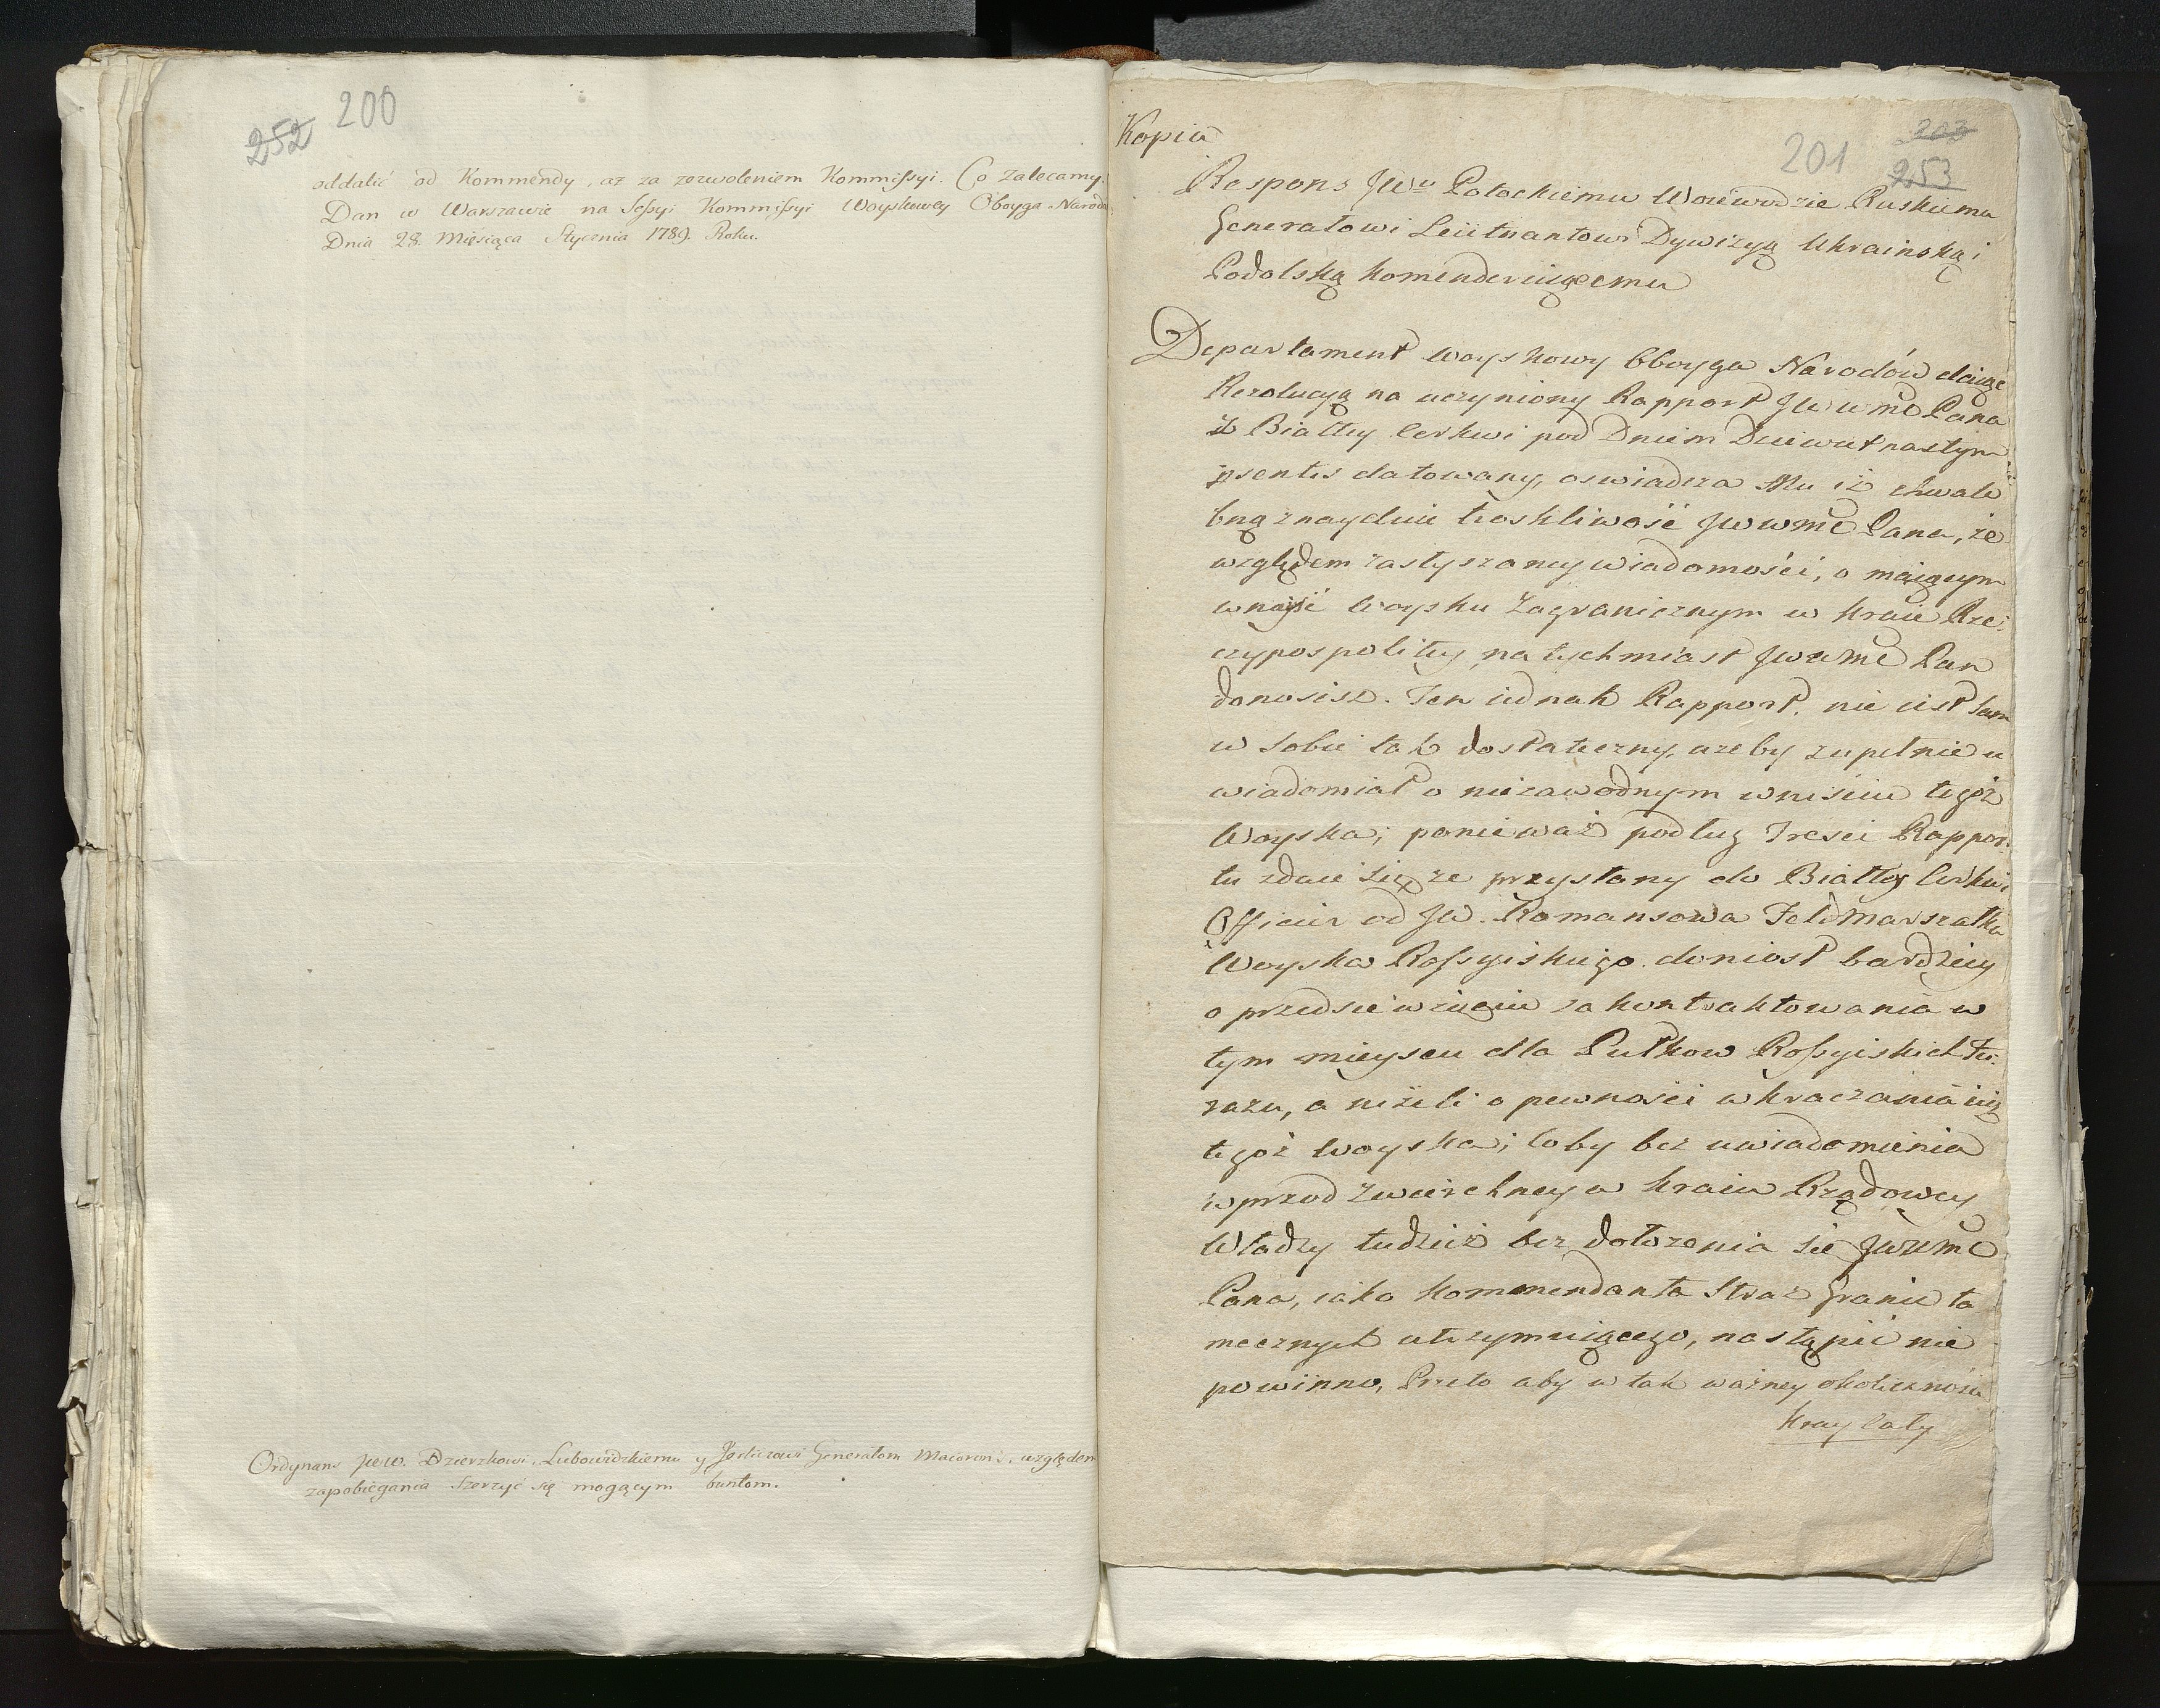 252 200
oddalić od Kommendy, aż za zezwoleniem Kommissyi. Co zalecamy.
Dan w Warszawie na Sessyi Kommissyi Woyskowey Oboyga Naroda
Dnia 28. Miesiąca Stycznia 1789. Roku.
Ordynans JWW. Dzierzkowi, Lubowidzkiemu y Jerliczowi Generałom Maiorom, względem
zapobiegania szerzyć się mogącym buntom.
Kopia
201 203 253
Respons JWu Potockiemu Woiewodzie Ruskiemu
Generałowi Leiitnantowi Dywizyą Ukrainską i
Podolską komenderuiącemu
Departament Woyskowy Oboyga Narodów daiąc
Rezolucyą na uczyniony Rapport JWWMC Pana
z Białłey Cerkwi pod Dniem Dziewiętnastym
psentis datowany, oswiadcza Mu iż chwale
bną znayduie troskliwość JWWMC Pana, że
względem zasłyszaney wiadomości, o maiącym
wnijść Woysku Zagranicznym w Kraie Rze:
czypospolitey, natychmiast JWWMC Pan
donosisz. Ten iednak Rapport, nie iest sam
w sobie tak dostateczny, ażeby zupełnie u
wiadomiał o niezawodnym wniściu tegoż
Woyska; ponieważ podług Tresci Rappor:
tu zdaie się że przysłany do Białłey Cerkwi
Officier od JW. Romansowa Feldmarszałka
Woyska Rossyiskiego doniosł bardziey
o przedsiewzięciu zakontraktowania w
tym mieyscu dla Pułkow Rossyiskich Fu:
razu, a niżeli o pewności wkraczania iuż
tegoż Woyska; coby bez uwiadomienia
wprzod Zwierchney w Kraiu Rządowey
Władzy tudzież bez dołożenia się JWWMC
Pana, iako Kommendanta Straż Granic ta
mecznych utrzymuiącego, nastąpić nie
powinno, Przeto aby w tak ważney okoliczności
Kray Cały